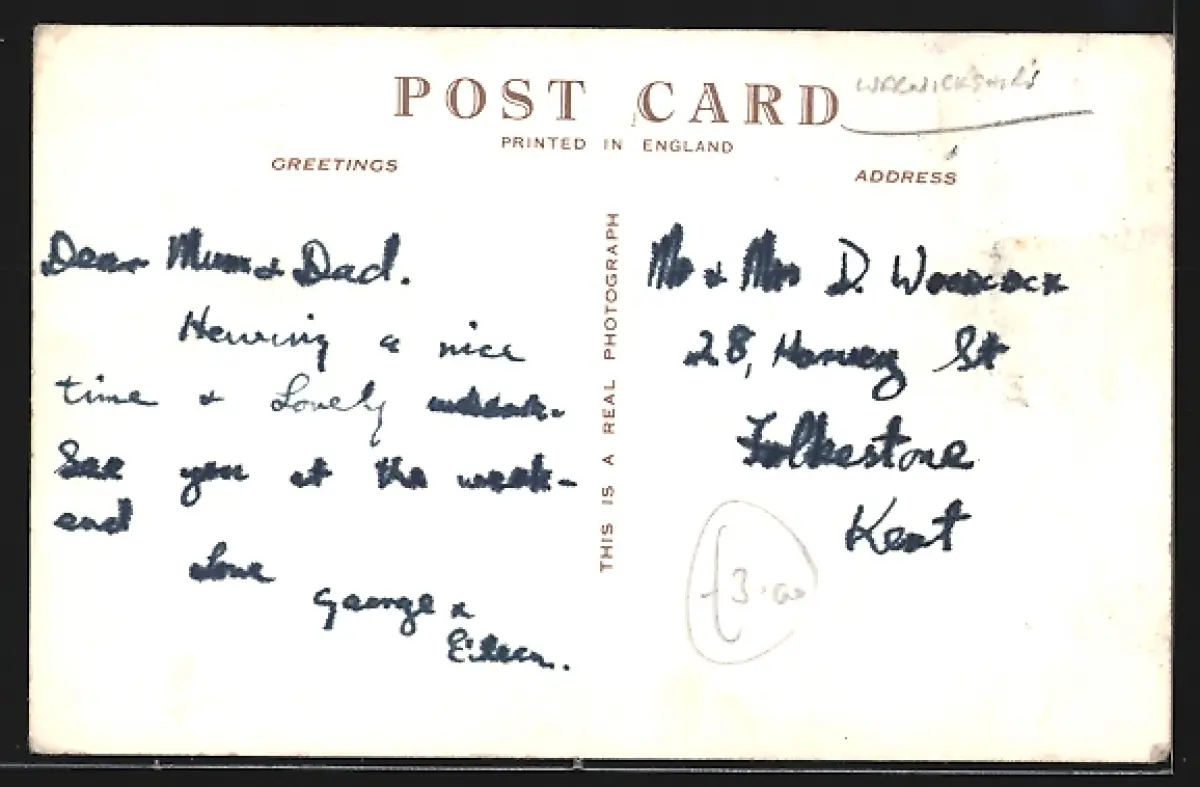 POST CARD
WARWICKSHIRE
PRINTED IN ENGLAND
GREETINGS
ADDRESS
Dear Mum & Dad.
Having a nice
time & Lovely
See you at the week-
end
Love
George &
Eileen.
THIS IS A REAL PHOTOGRAPH
Mr & Mrs D. Woodcock
28, Harvey St
Folkestone
Kent
£3.00